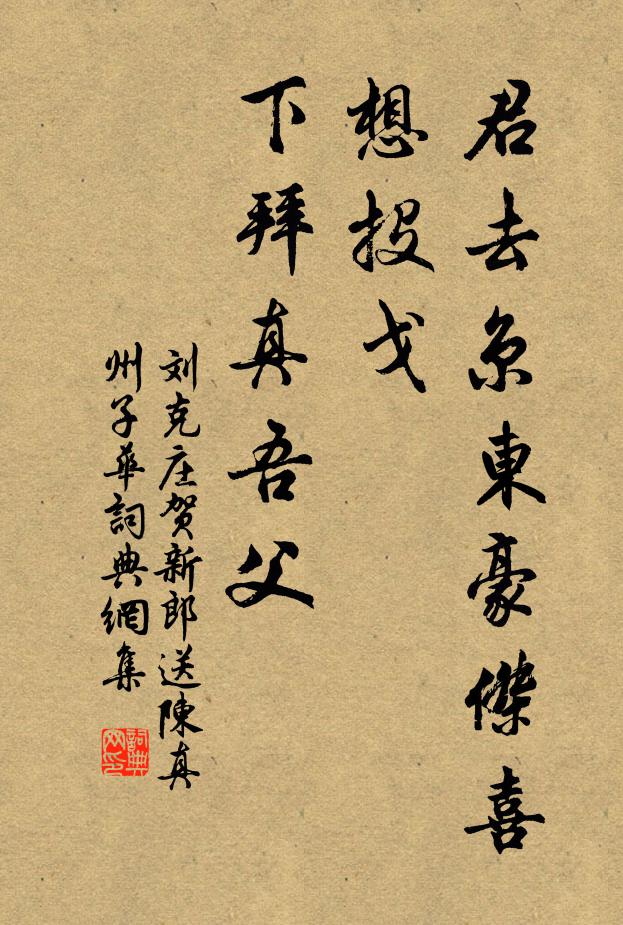 君去京東豪傑喜
想投戈
下拜真吾父
刘克庄贺新郎送陳真
州子華詞典網集
詞典
网印